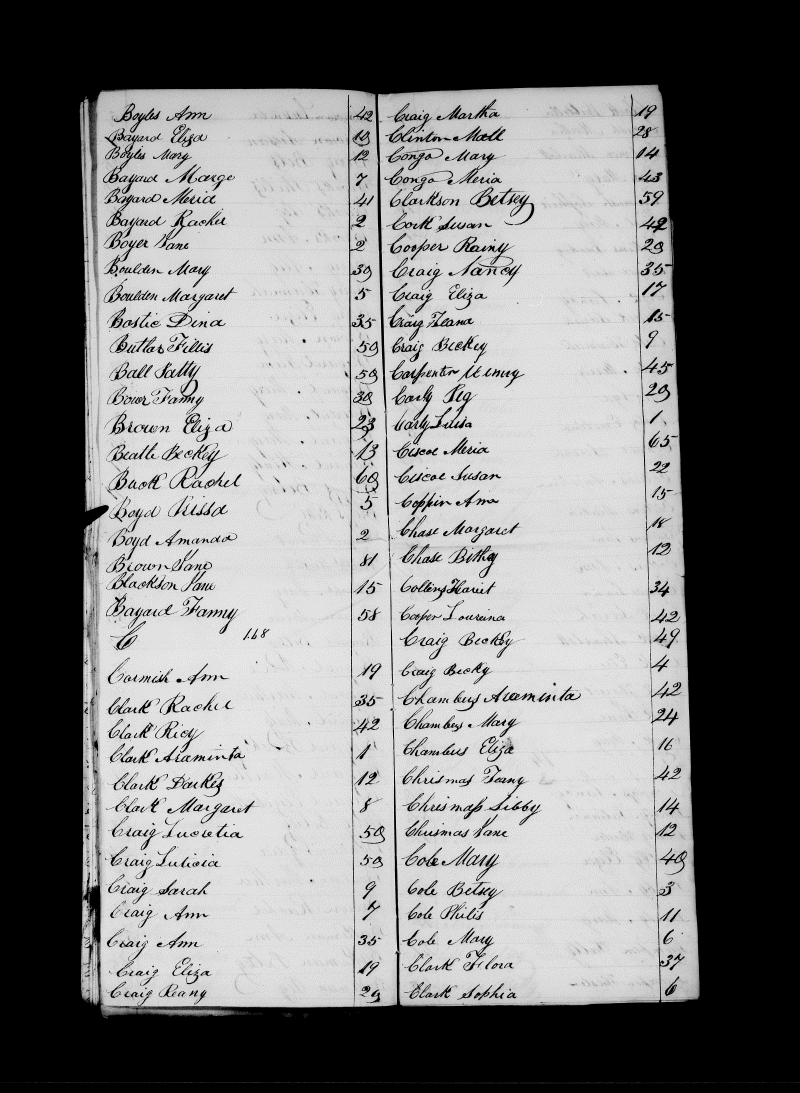 Boyles Ann 42
Bayard Eliza 19
Boyles Mary 12
Bayard Marge 7
Bayard Meria 41
Bayard Rachel 2
Boyer Jane 2
Boulden Mary 39
Boulden Margaret 5
Bostic Dina 35
Butlar Fillis 59
Ball Sally 59
Bower Fanny 38
Brown Eliza 23
Beatle Beckey 13
Buck Rachel 68
Boyd Rissa 5
Boyd Amanda 2
Brown Jane 81
Blackson Jane 15
Bayard Fanny 58
C 168
Cormish Ann 19
Clark Rachel 35
Clark Ricy 42
Clark Araminta 1
Clark Darkes 12
Clark Margaret 8
Craig Lucretia 59
Craig Luticia 59
Craig Sarah 9
Craig Ann 7
Craig Ann 35
Craig Eliza 19
Craig Reany 29
Craig Martha 19
Clinton Moll 28
Congo Mary 14
Congo Meria 43
Clarkson Betsey 59
Cork Susan 42
Cooper Rainy 29
Craig Nancy 35
Craig Eliza 17
Craig Leana 15
Craig Beckey 9
Carpenter 45
Carly Peg 29
Carly Luisa 1
Ciscoe Meria 65
Ciscoe Susan 22
Coppin Ama 15
Chase Margaret 18
Chase Bethy 12
Collens Hariet 34
Cooper Loureina 42
Craig Beckey 49
Craig Becky 4
Chambers Araminta 42
Chambers Mary 24
Chambers Eliza 16
Chrismas Fanny 42
Chrismass Sibby 14
Chrismas Jane 12
Cole Mary 49
Cole Betsey 3
Cole Philis 11
Cole Mary 6
Clark Flora 37
Clark Sophia 6